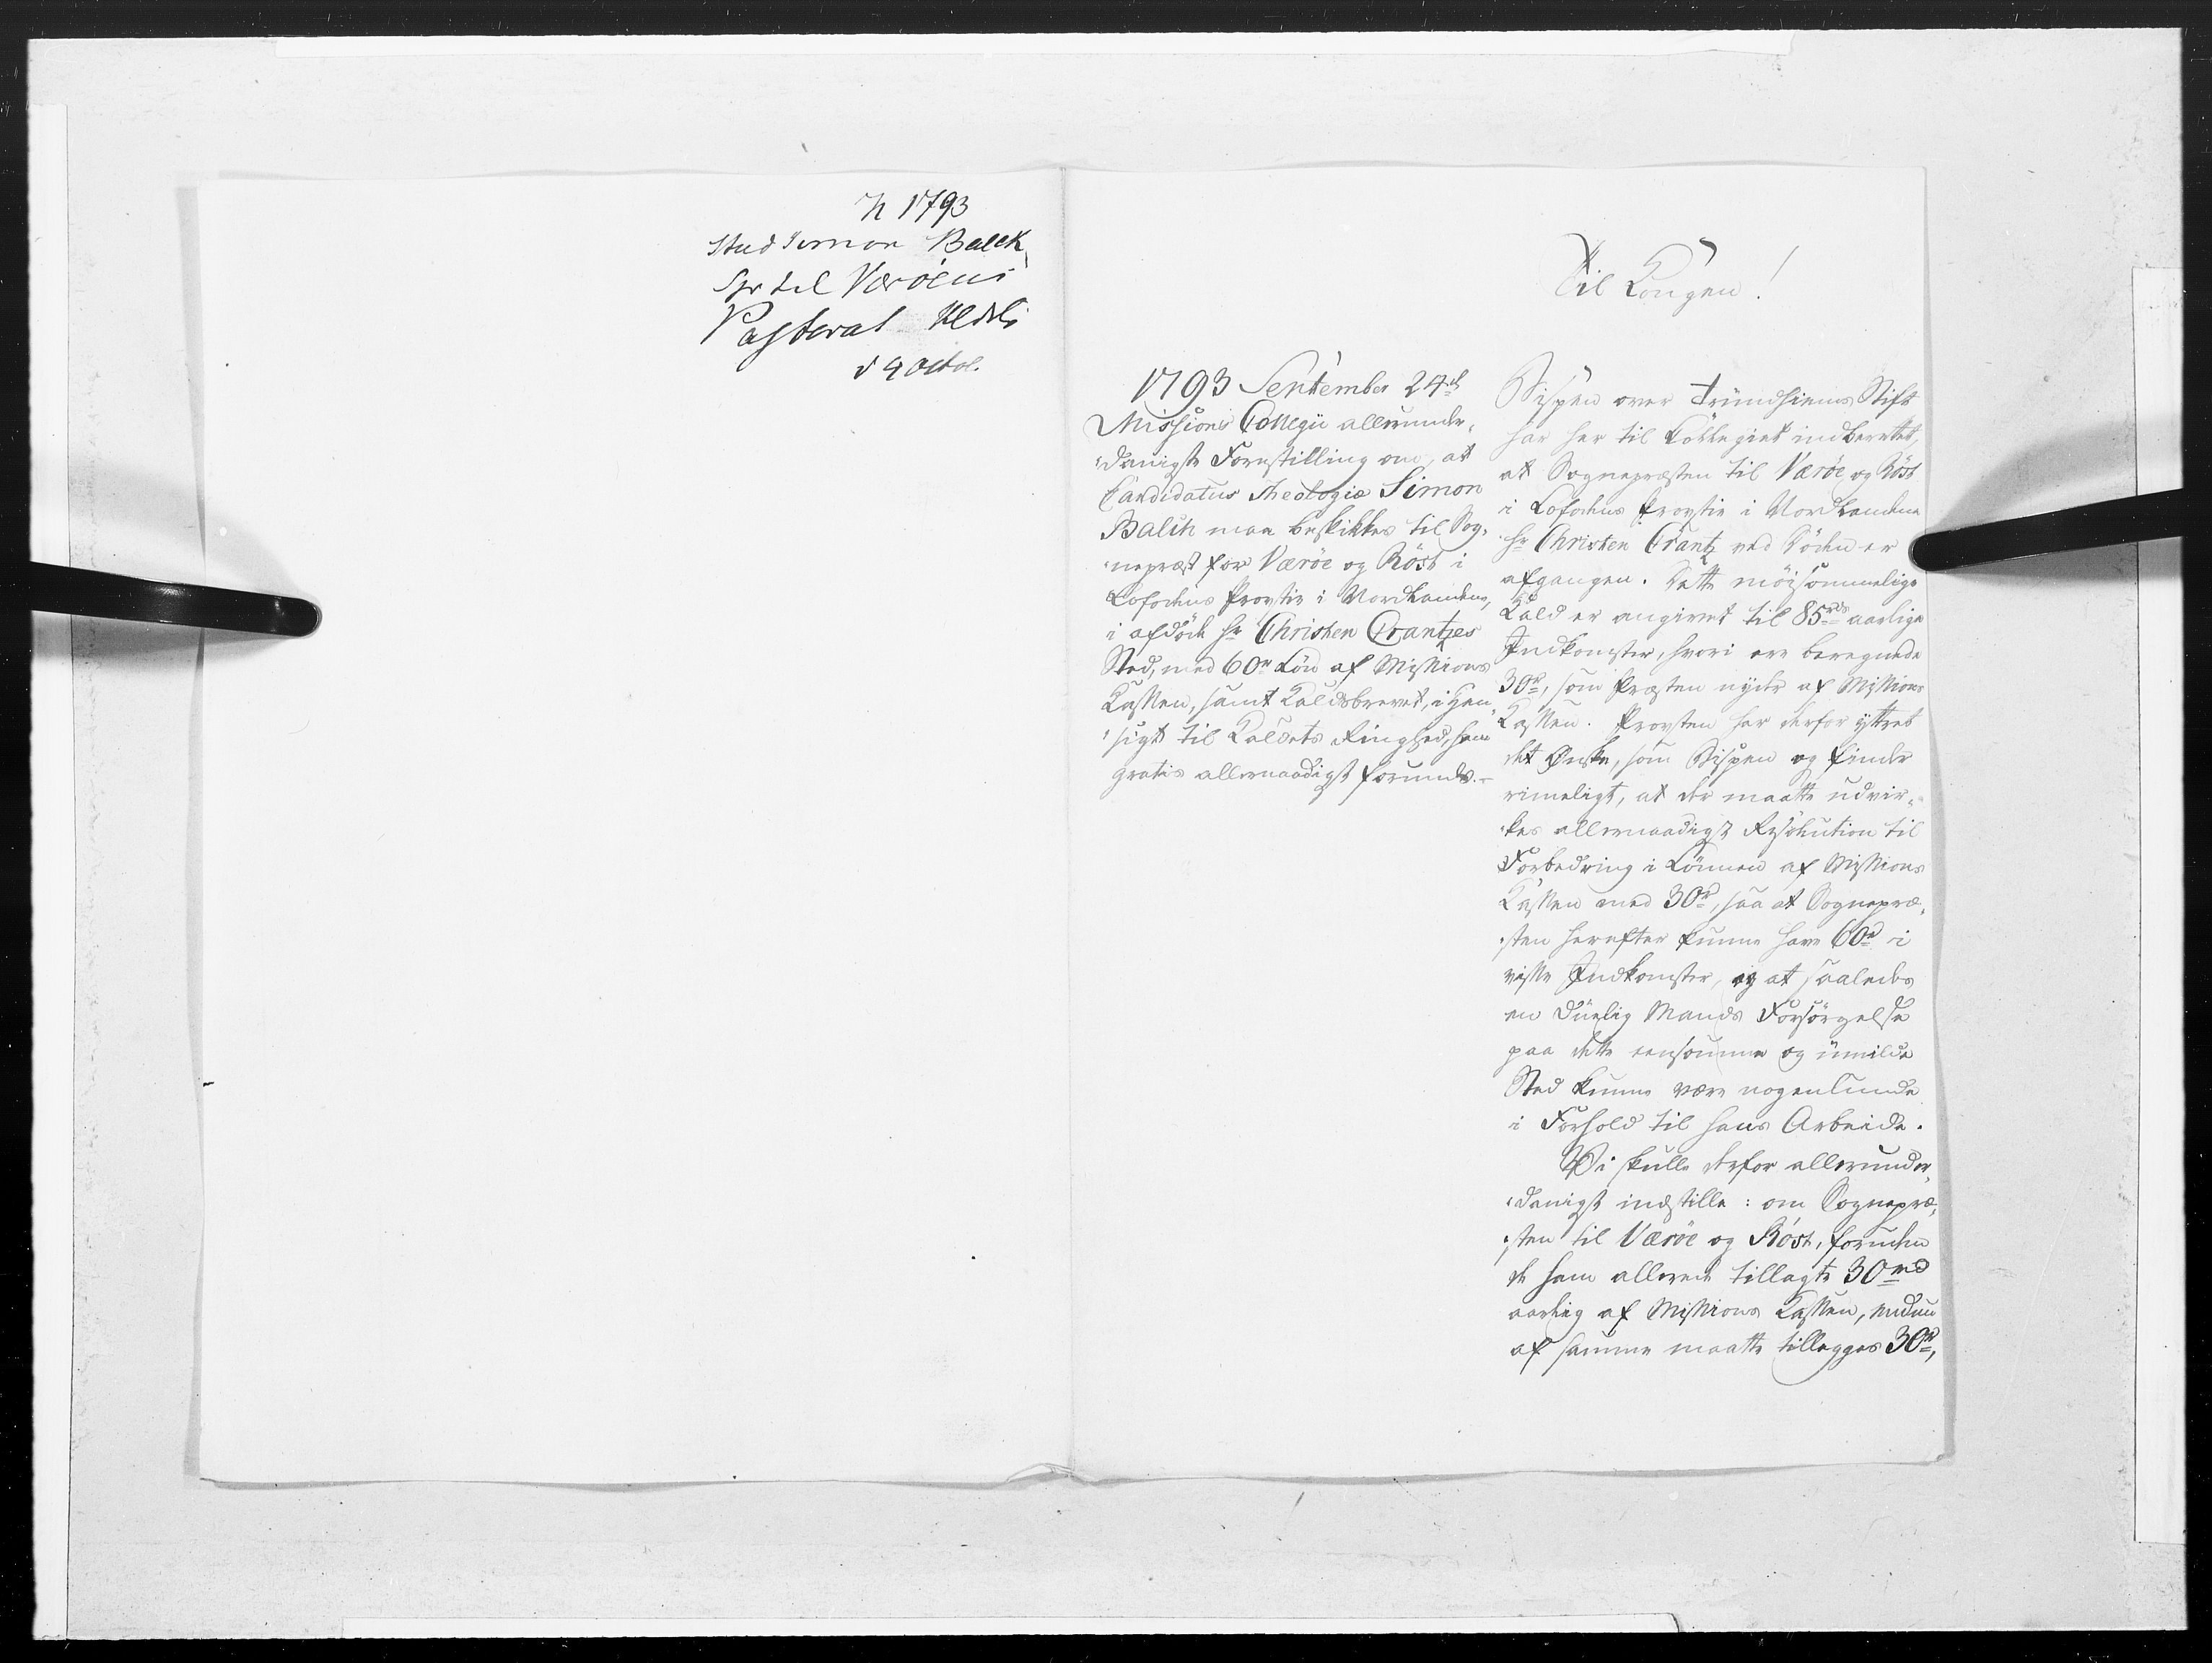 N 1793
Stud Simon Balck
Spr til Værøens
Pastorat
d 4 Octob.
Til Kongen!
1793 September 24d
Missions Collegii allerunder-
danigste Forestilling om, at
Candidatus Theologiæ Simon
Balck maa beskikkes til Sog-
nepræst for Værøe og Röst i
Lofodens Provstie i Nordlandene,
i afdöde Hr Christen Crantzes
Sted, med 60rd Lön af Missions
Kassen, samt Kaldsbrevet, i Hen-
sigt til Kaldets Ringhed, ham
gratis allernaadigst forundes.
Bispen over Trundhiems Stift
har her til Collegiet indberettet,
at Sognepræsten til Værøe og Röst
i Lofodens Provstie i Nordlandene
Hr Christen Crantz ved Döden er
afgangen. Dette möisommelige
Kald er angivet til 85rd aarlige
Indkomster, hvori ere beregnede
30rd, som Præsten nyder af Missions
Kassen. Provsten har derfor yttret
det Ønske, som Bispen og finder
rimeligt, at der maatte udvir-
kes allernaadigst Resolution til
Forbedring i Lönnen af Missions
Kassen med 30rd, saa at Sognepræ-
sten herefter kunne have 60rd i
visse Indkomster, og at saaledes
en duelig Mands Forsörgelse
paa dette eensomme og umilde
Sted kunne være nogenlunde
i Forhold til hans Arbeide.
Vi skulle derfor allerunder-
danigst indstille: om Sognepræ-
sten til Værøe og Röst, foruden
de ham allerede tillagte 30rd
aarlig af Missions Kassen, endnu
af samme maatte tillægges 30rd,